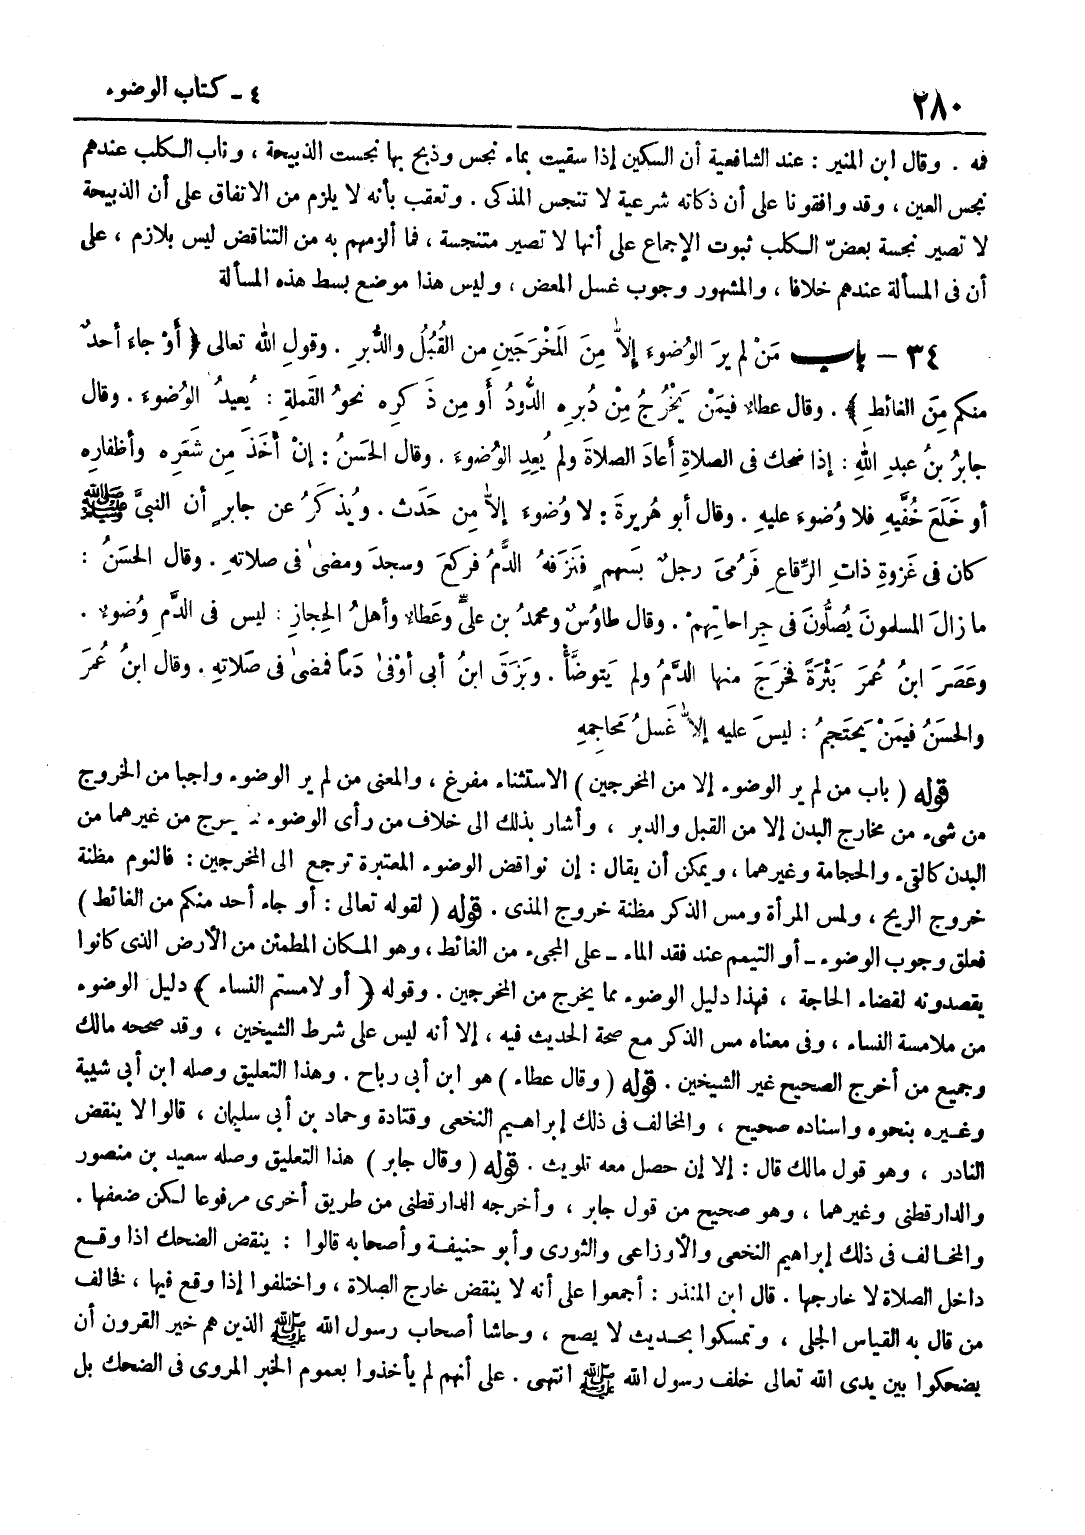 ٢٨٠
٤ - كتاب الوضوء
فمه . وقال ابن المنير : عند الشافعية أن السكين إذا سقيت بماء نجس وذبح بها نجست الذبيحة ، وناب الكلب عندهم
نجس العين ، وقد وافقونا على أن ذكاته شرعية لا تنجس المذكى . وتعقب بأنه لا يلزم من الاتفاق على أن الذبيحة
لا تصير نجسة بعض الكلب ثبوت الإجماع على أنها لا تصير متنجسة ، فما ألزمهم به من التناقض ليس بلازم ، على
أن فى المسألة عندهم خلافا ، والمشهور وجوب غسل المعض ، وليس هذا موضع بسط هذه المسألة
٣٤ - باب مَنْ لم يرَ الوُضوءَ إلاّ مِنَ المَخْرَجَينِ من القُبُلُ والدُّبرِ . وقولِ الله تعالى ﴿ أَوْ جاءَ أحدٌ
منكم مِنَ الغائطِ ﴾ . وقال عطاءٌ فيمَنْ يَخْرُجُ مِنْ دُبرِه الدُّودُ أو مِن ذَكرِه نحوُ القَملةِ : يُعيدُ الوُضوءَ . وقال
جابرُ بنُ عبدِ اللهِ : إذا ضحك فى الصلاةِ أعادَ الصلاةَ ولم يُعِدِ الوُضوءَ . وقال الحسَنُ : إنْ أخَذَ مِن شَعَرِه وأظفارِه
أو خَلَعَ خُفَّيهِ فلا وُضوءَ عليهِ . وقال أبو هُريرةَ : لا وُضوءَ إلاّ مِن حَدَث . ويُذكَرُ عن جابرٍ أن النبىَّ ﷺ
كان فى غَزوةِ ذاتِ الرِّقاعِ فَرُمىَ رجلٌ بَسهمٍ فنَزَفَهُ الدَّمُ فركعَ وسجدَ ومضىٰ فى صلاتهِ . وقال الحسَنُ :
ما زالَ المسلمونَ يُصلُّونَ فى جِراحاتِهمْ . وقال طاوُسٌ ومحمدُ بن علىٍّ وعَطاءٌ وأهلُ الحِجازِ : ليس فى الدَّمِ وُضوءٌ .
وعَصَرَ ابنُ عُمَرَ بَثْرَةً فخرَجَ منها الدَّمُ ولم يَتوضَّأْ . وبَزَقَ ابنُ أبى أوْفىٰ دَماً فمضىٰ فى صَلاتهِ . وقال ابنُ عُمَرَ
والحسَنُ فيمَنْ يَحتَجمُ : ليسَ عليه إلاّ غَسلُ مَحاجِمهِ
قوله ( باب من لم ير الوضوء إلا من المخرجين ) الاستثناء مفرغ ، والمعنى من لم ير الوضوء واجبا من الخروج
من شىء من مخارج البدن إلا من القبل والدبر ، وأشار بذلك الى خلاف من رأى الوضوء يخرج من غيرهما من
البدن كالقىء والحجامة وغيرهما ، ويمكن أن يقال : إن نواقض الوضوء المعتبرة ترجع الى المخرجين : فالنوم مظنة
خروج الريح ، ولمس المرأة ومس الذكر مظنة خروج المذى . قوله ( لقوله تعالى : أو جاء أحد منكم من الغائط )
فعلق وجوب الوضوء - أو التيمم عند فقد الماء - على المجىء من الغائط ، وهو المكان المطمئن من الأرض الذى كانوا
يقصدونه لقضاء الحاجة ، فهذا دليل الوضوء مما يخرج من المخرجين . وقوله ﴿ أو لامستم النساء ﴾ دليل الوضوء
من ملامسة النساء ، وفى معناه مس الذكر مع صحة الحديث فيه ، إلا أنه ليس على شرط الشيخين ، وقد صححه مالك
وجميع من أخرج الصحيح غير الشيخين . قوله ( وقال عطاء ) هو ابن أبى رباح . وهذا التعليق وصله ابن أبى شيبة
وغيره بنحوه واسناده صحيح ، والمخالف فى ذلك إبراهيم النخعى وقتادة وحماد بن أبى سليمان ، قالوا لا ينقض
النادر ، وهو قول مالك قال : إلا إن حصل معه تلويث . قوله ( وقال جابر ) هذا التعليق وصله سعيد بن منصور
والدارقطنى وغيرهما ، وهو صحيح من قول جابر ، وأخرجه الدارقطنى من طريق أخرى مرفوعا لكن ضعفها .
والمخالف فى ذلك إبراهيم النخعى والأوزاعى والثورى وأبو حنيفة وأصحابه قالوا : ينقض الضحك اذا وقع
داخل الصلاة لا خارجها . قال ابن المنذر : أجمعوا على أنه لا ينقض خارج الصلاة ، واختلفوا إذا وقع فيها ، فخالف
من قال به القياس الجلى ، وتمسكوا بحديث لا يصح ، وحاشا أصحاب رسول الله ﷺ الذين هم خير القرون أن
يضحكوا بين يدى الله تعالى خلف رسول الله ﷺ انتهى . على أنهم لم يأخذوا بعموم الخبر المروى فى الضحك بل